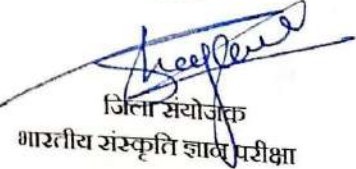 जिला संयोजक
भारतीय संस्कृति ज्ञान परीक्षा